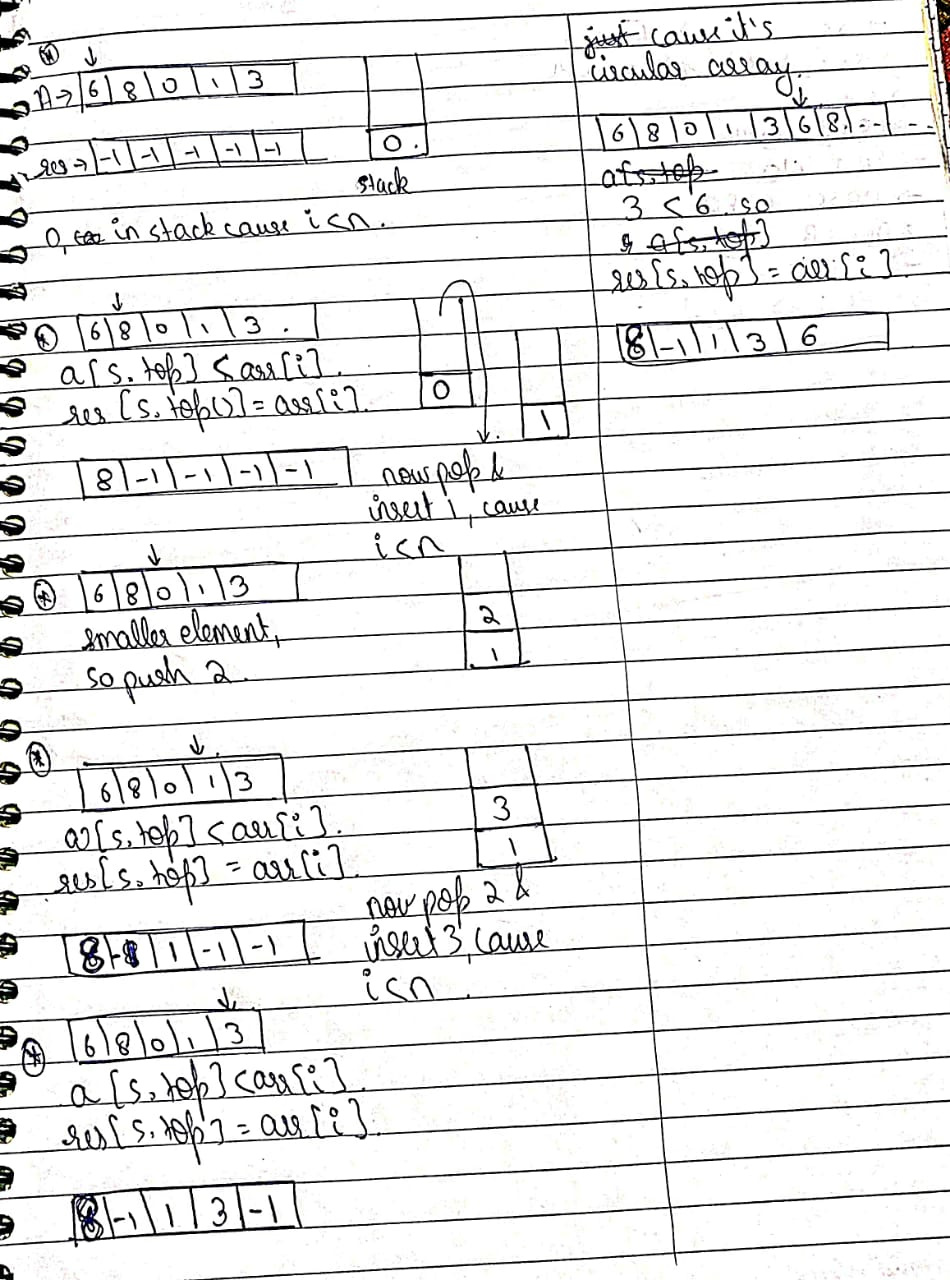 A → 6 | 8 | 0 | 1 | 3
res → -1 | -1 | -1 | -1 | -1
0.
stack
0, in stack cause i<n.
6 | 8 | 0 | 1 | 3 .
a[s.top] < arr[i].
res [s.top()] = arr[i].
0
1
8 | -1 | -1 | -1 | -1
now pop &
insert 1, cause
i<n
6 | 8 | 0 | 1 | 3
smaller element,
so push 2.
2
1
6 | 8 | 0 | 1 | 3
a[s.top] < arr[i].
res[s.top] = arr[i].
3
1
now pop 2 &
insert 3, cause
i<n.
8 | -1 | 1 | -1 | -1
6 | 8 | 0 | 1 | 3
a [s.top] < arr[i].
res[s.top] = arr[i].
8 | -1 | 1 | 3 | -1
just cause it's
circular array.
6 | 8 | 0 | 1 | 3 | 6 | 8 | .. - ..
a[s.top
3 < 6 so
a[s.top]
res[s.top] = arr[i].
8 | -1 | 1 | 3 | 6